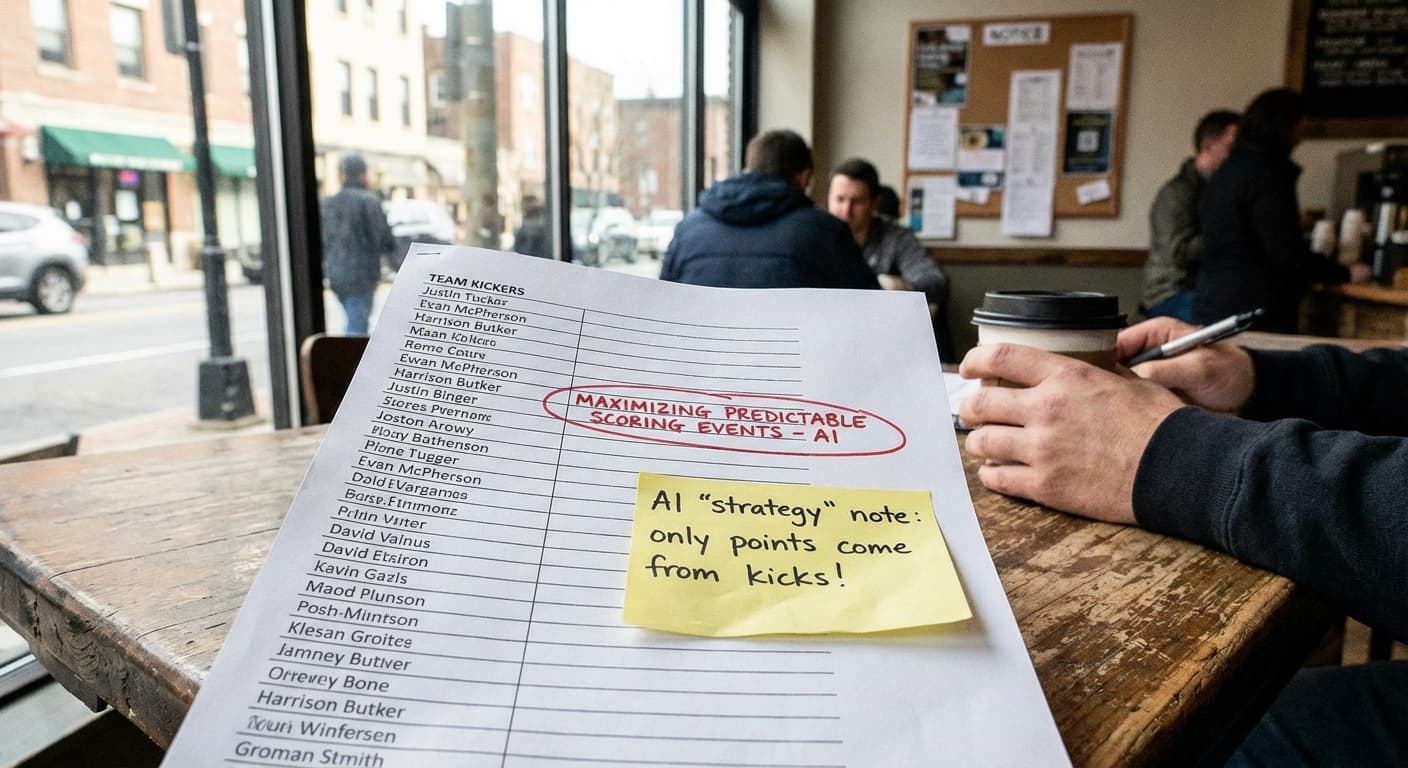 TEAM KICKERS
Justin Tucker
Evan McPherson
Harrison Butker
Maan
Reme
Ewan McPherson
Harrison Butker
Justin Binger
Stores
Joston Arowy
Bathenson
Plone Tugger
Evan McPherson
David Valnus
David
Kavin Gazls
Maod Plunson
Posh-Mintson
Klesan Groites
Jamney
Orrevey Bone
Harrison Butker
Winfersen
Groman Stmith
MAXIMIZING PREDICTABLE
SCORING EVENTS – AI
AI "strategy" note:
only points come
from kicks!
NOTICE